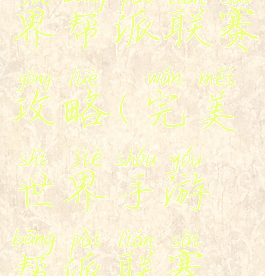 界帮派联赛
gōng lüè wán měi
攻略(完美
shì jiè shǒu yóu
世界手游
bāng pài lián sài
帮派联赛